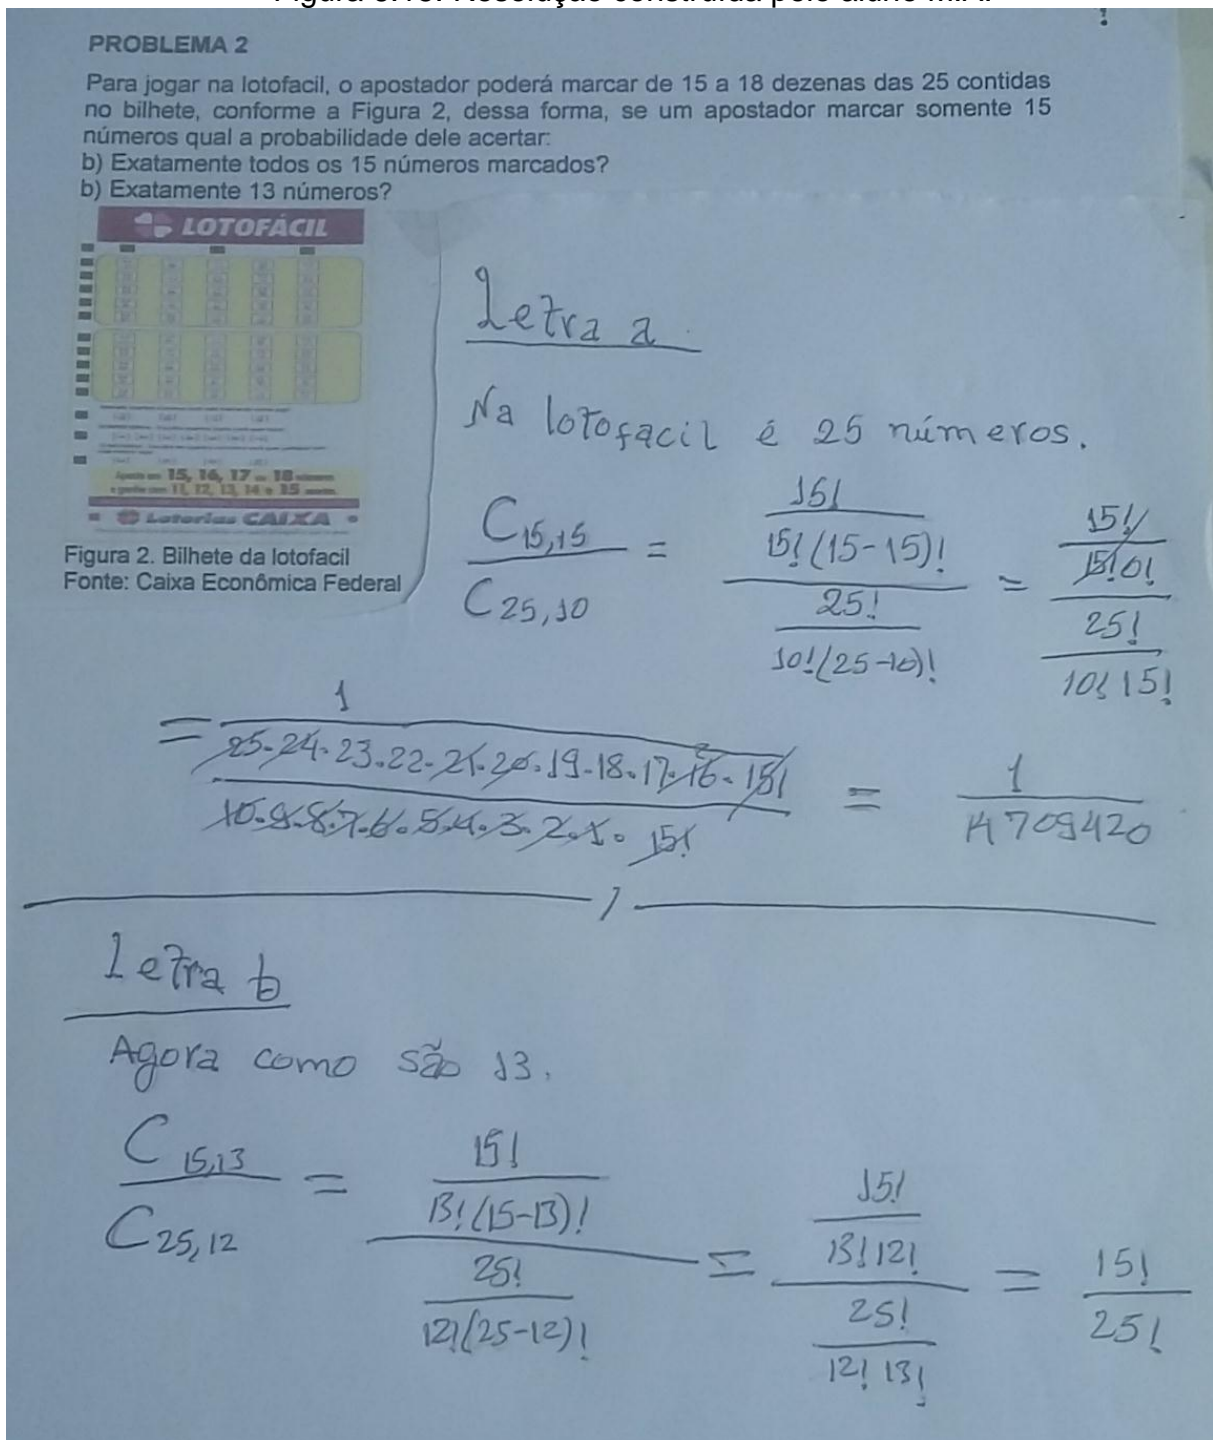 PROBLEMA 2
Para jogar na lotofacil, o apostador poderá marcar de 15 a 18 dezenas das 25 contidas
no bilhete, conforme a Figura 2, dessa forma, se um apostador marcar somente 15
números qual a probabilidade dele acertar:
b) Exatamente todos os 15 números marcados?
b) Exatamente 13 números?
LOTOFÁCIL
15, 16, 17 18
11, 12, 13, 14 e 15
Loterias CAIXA
Figura 2. Bilhete da lotofacil
Fonte: Caixa Econômica Federal
Letra a
Na lotofacil é 25 números.
C15,15 / C25,10 = 15! / 15!(15-15)! / 25! / 10!(25-10)! = 15! / 15!0! / 25! / 10!15!
= 1 / 25.24.23.22.21.20.19.18.17.16.15! / 10.9.8.7.6.5.4.3.2.1.15! = 1
Letra b
Agora como são 13.
C15,13 / C25,12 = 15! / 13!(15-13)! / 25! / 12!(25-12)! = 15! / 13!12! / 25! / 12!13! = 15! / 25!